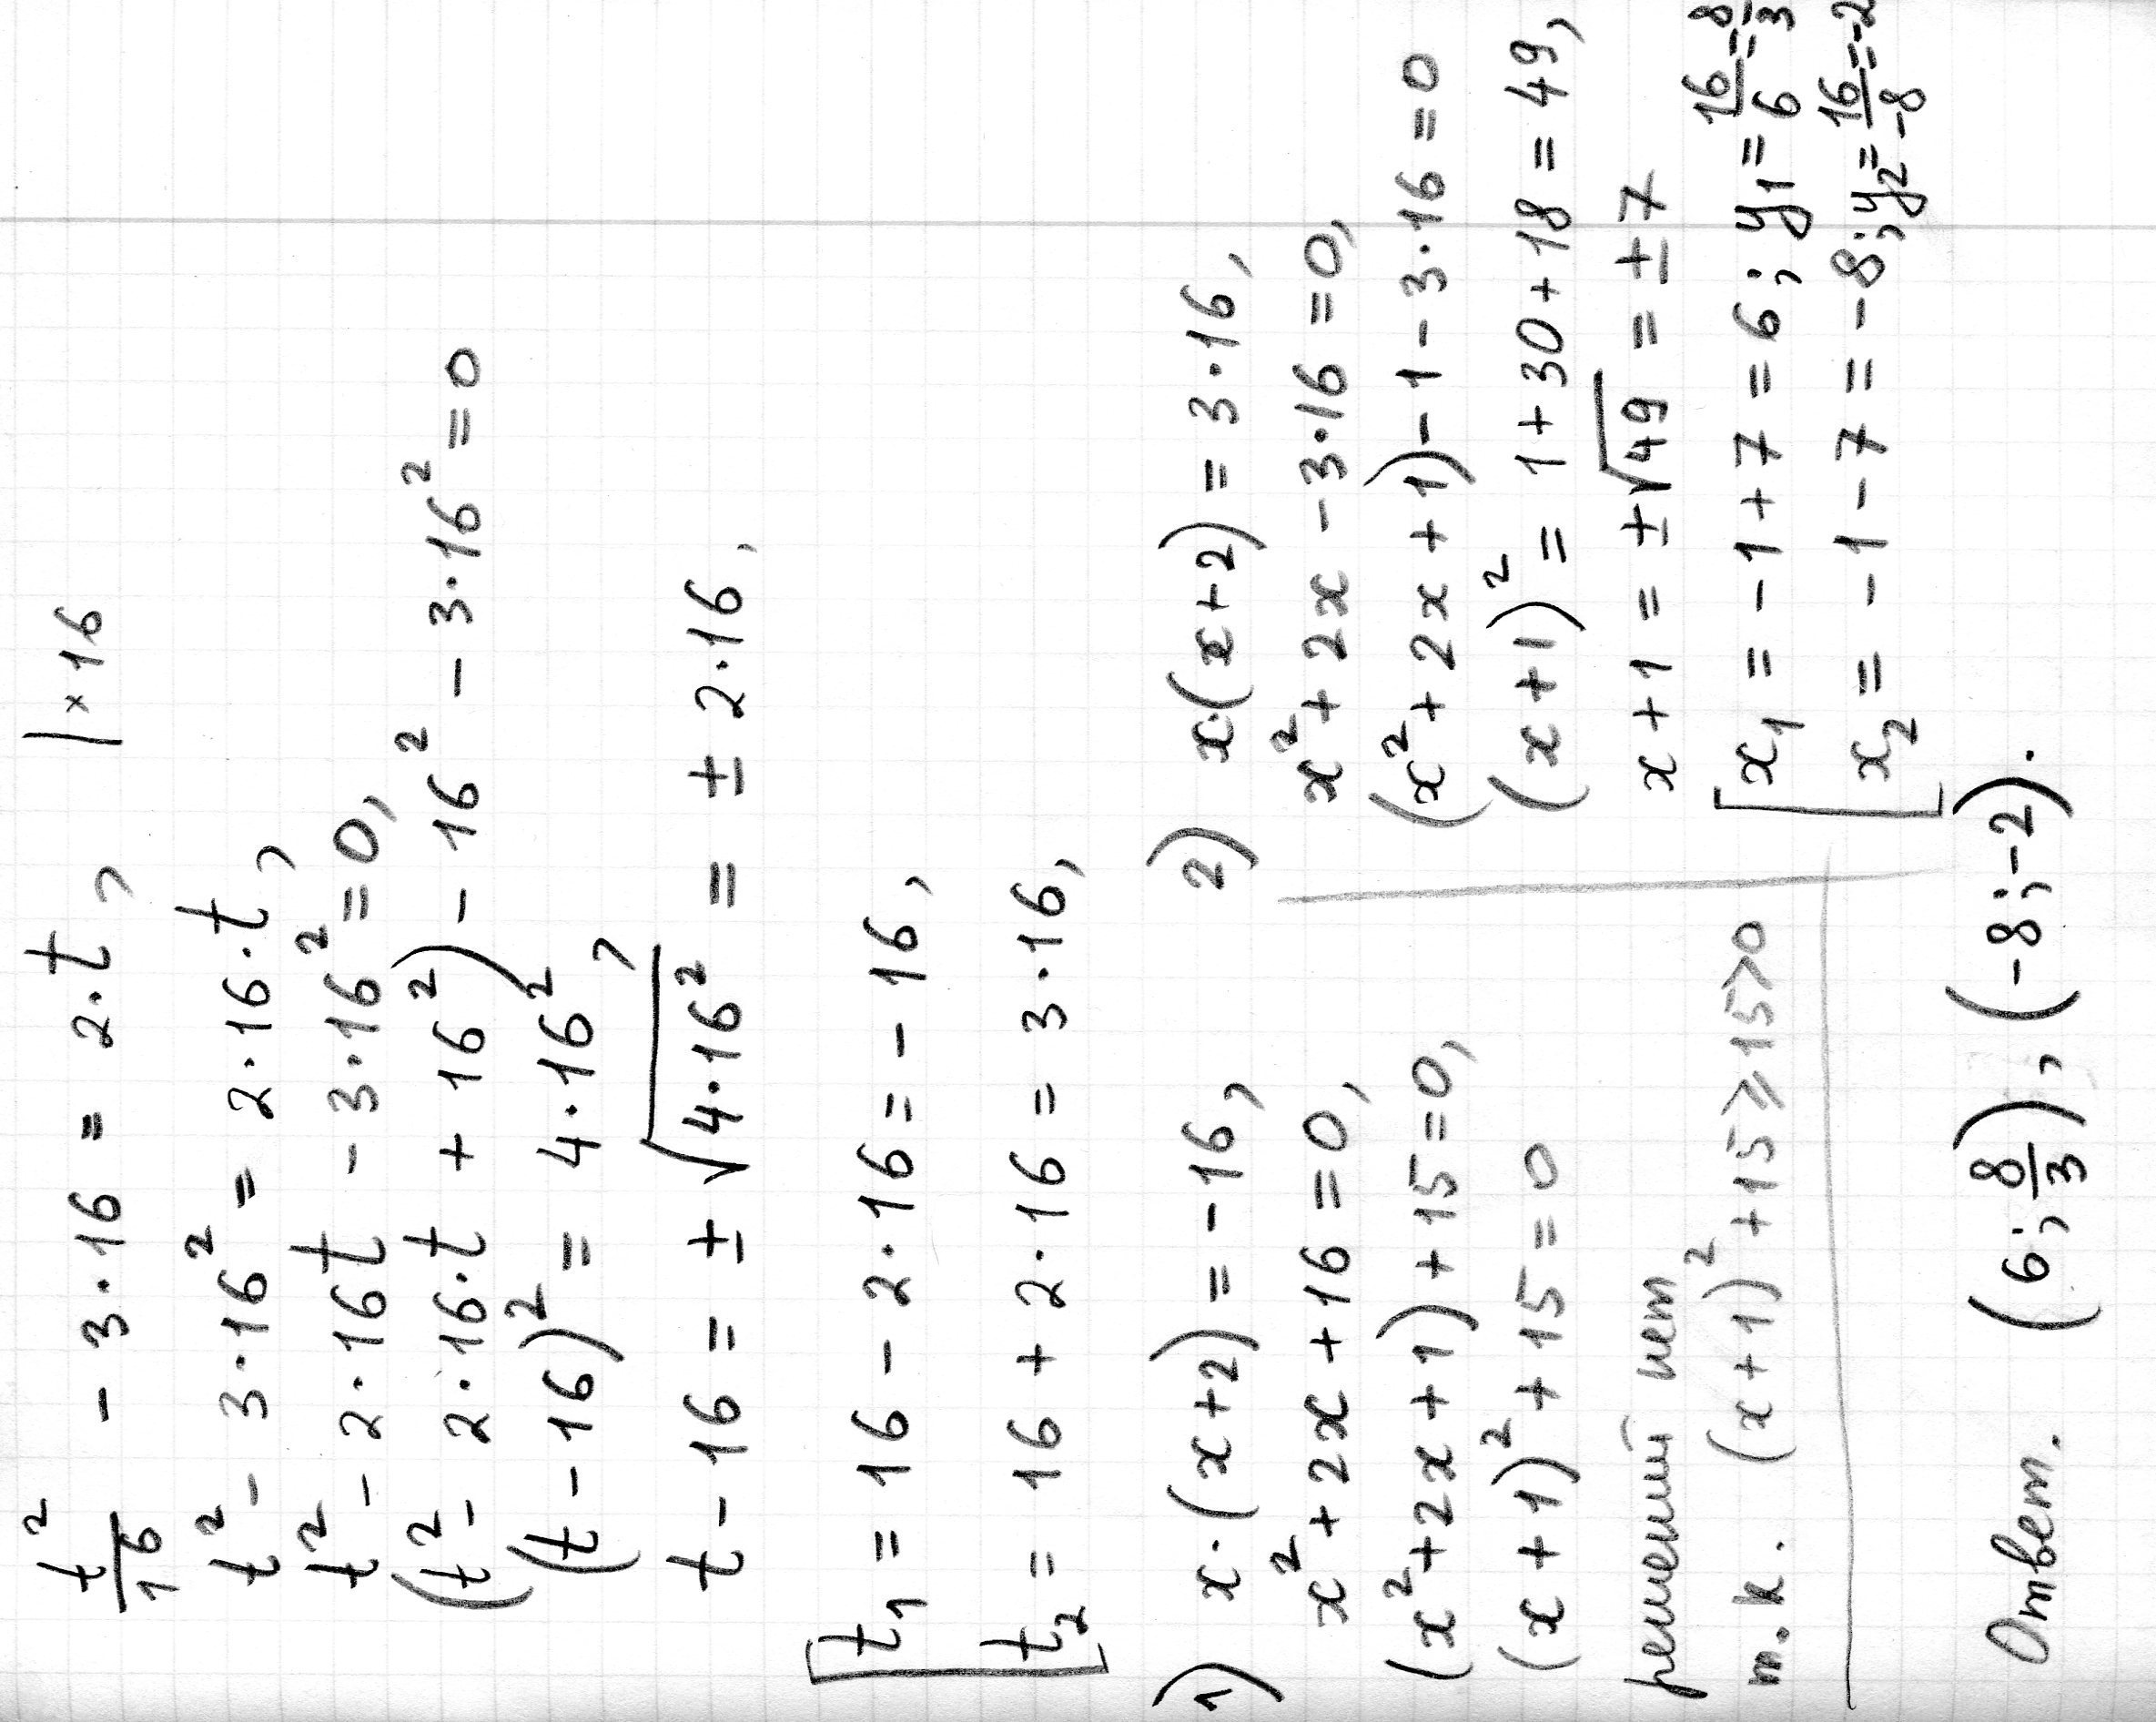 t²/16 - 3·16 = 2·t, | × 16
t² - 3·16² = 2·16·t,
t² - 2·16t - 3·16² = 0,
(t² - 2·16·t + 16²) - 16² - 3·16² = 0
(t - 16)² = 4·16²,
t - 16 = ± √4·16² = ± 2·16,
[ t₁ = 16 - 2·16 = - 16,
t₂ = 16 + 2·16 = 3·16,
1) x·(x+2) = -16,
x² + 2x + 16 = 0,
(x² + 2x + 1) + 15 = 0,
(x + 1)² + 15 = 0
решений нет
т.к. (x+1)² + 15 ⩾ 15 > 0
2) x·(x+2) = 3·16,
x² + 2x - 3·16 = 0,
(x² + 2x + 1) - 1 - 3·16 = 0
(x + 1)² = 1 + 30 + 18 = 49,
x + 1 = ± √49 = ± 7
[ x₁ = - 1 + 7 = 6; y₁ = 16/6 = 8/3
x₂ = - 1 - 7 = -8; y₂ = 16/-8 = -2
Ответ. (6; 8/3), (-8; -2).